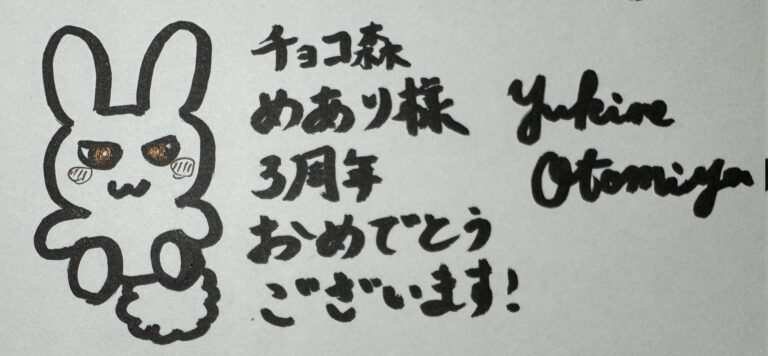 チョコ森
めあり様
3周年
おめでとう
ございます!
Yukine
Otomiya